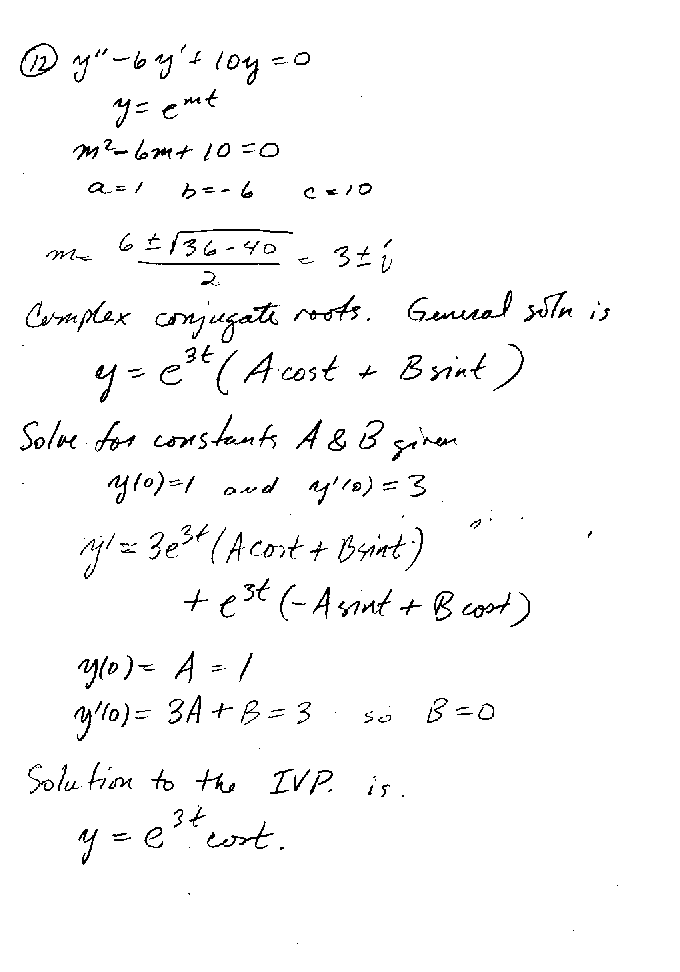 ⑫ y'' - 6y' + 10y = 0
y = e^{mt}
m² - 6m + 10 = 0
a = 1 b = -6 c = 10
m = (6 ± √(36 - 40))/2 = 3 ± i
Complex conjugate roots. General soln is
y = e^{3t}(A cos t + B sin t)
Solve for constants A & B given
y(0) = 1 and y'(0) = 3
y' = 3e^{3t}(A cos t + B sin t)
+ e^{3t}(-A sin t + B cos t)
y(0) = A = 1
y'(0) = 3A + B = 3 so B = 0
Solution to the IVP. is.
y = e^{3t} cos t.